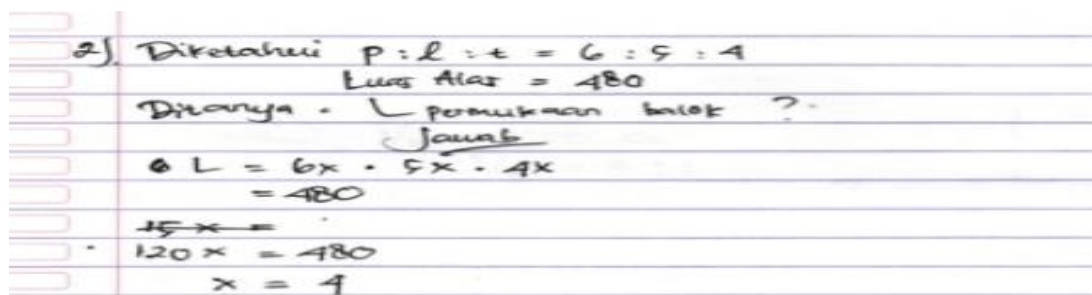 2). Diketahui p : l : t = 6 : 5 : 4
Luas Alas = 480
Ditanya . L permukaan balok ?
Jawab
L = 6x . 5x . 4x
= 480
15 x =
120 x = 480
x = 4